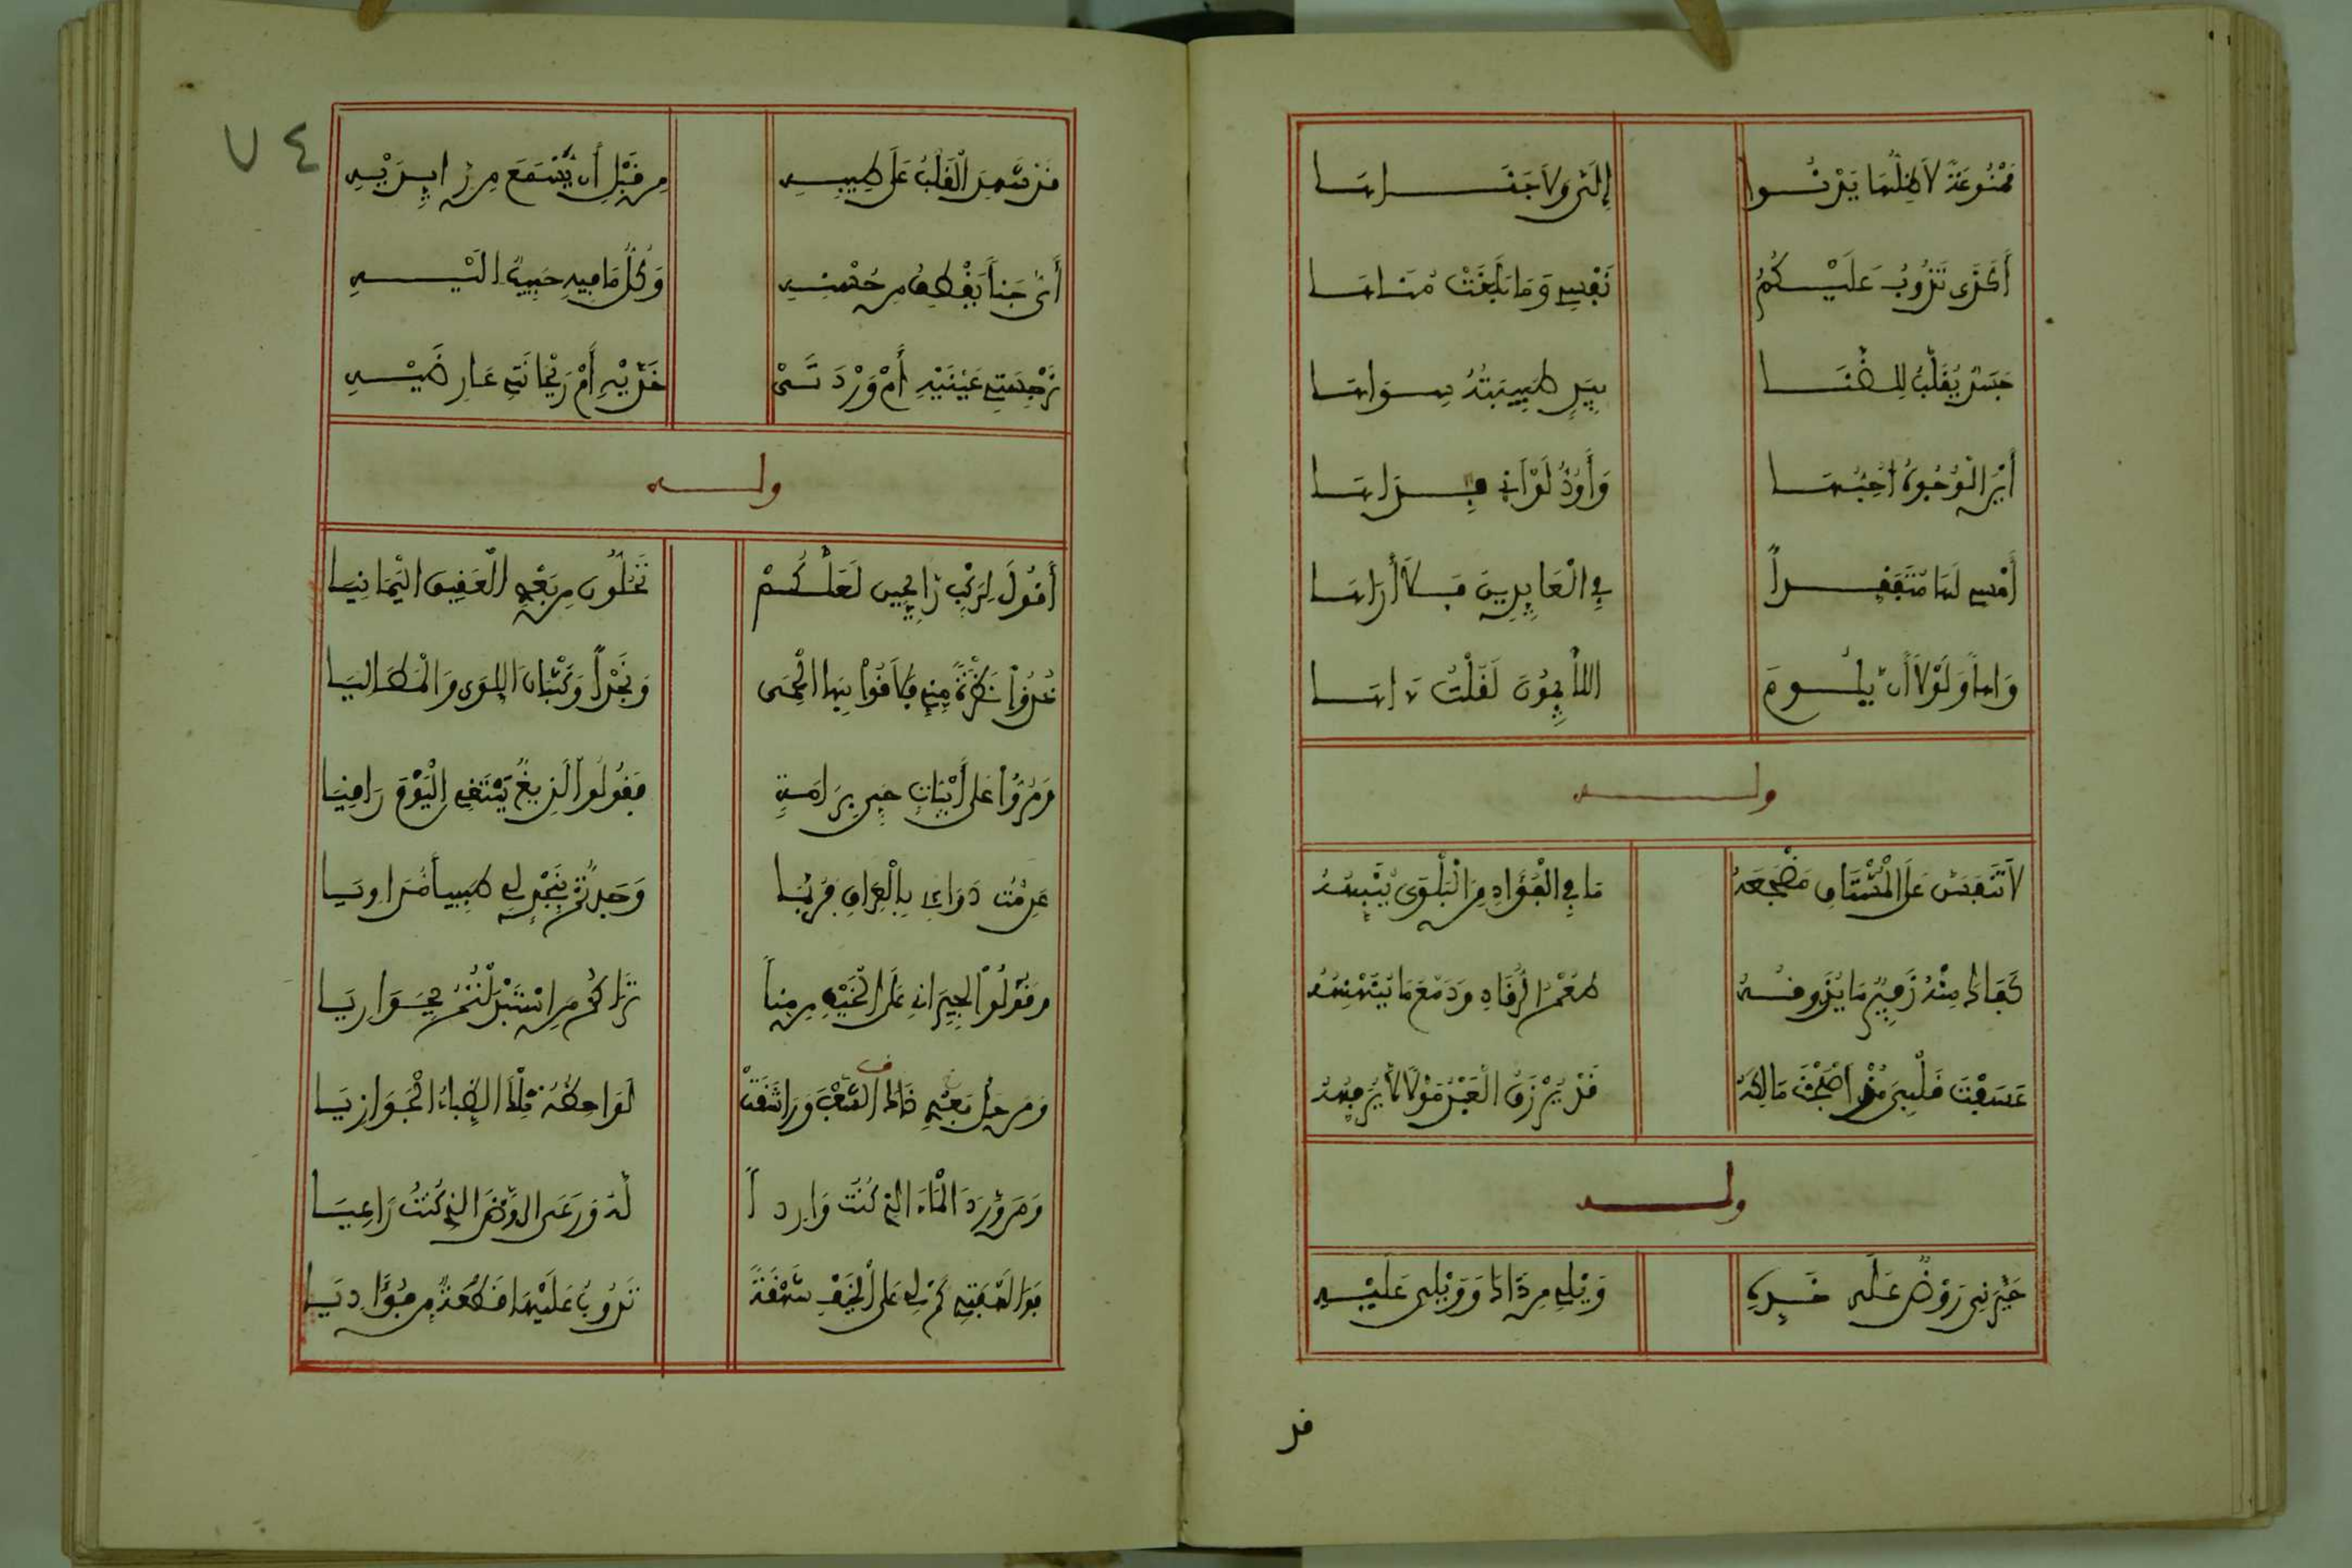 مَمْنُوعَةٌ لَا ظِلُّهَا يَدْنُوا إِلَىَّ وَلَا جَنَاهَا
أَكَذَى تَذُوبُ عَلَيْكُمُ نَفْسِى وَمَا بَلَغَتْ مُنَاهَا
جَسَدٌ يُقَلَّبُ لِلضَّنَا بِيَدٍ طَبِيبَتُهُ سِوَاهَا
أَيْنَ الْوُجُوهُ أُحِبُّهَا وَأَوَدُّ لَوْ أَنِّى فِدَاهَا
أُمْسِى لَهَا مُتَفَقِّداً فِى الْعَائِدِينَ فَلَا أَرَاهَا
وَاهاً وَلَوْلَا أَن يَلُومَ اللَّائِمُونَ لَقُلْتُ ءَاهَا
ولـــه
لَا تَنْفَسَنَّ عَلَى الْمُشْتَاقِ مَضْجَعَهُ مَا فِى الْفُؤَادِ مِنَ الْبَلْوَى
كَفَاكَ مِنْهُ زَفِيرٌ مَا طَعْمُ الرُّقَادِ وَدَمْعٌ مَا
قَلْبِى أَصْبَحْتَ مَالِكَهُ قَدْ يُرْزَقُ الْعَبْدُ مَوْلًى لَا
ولـــه
خَبَّرَنِى رَوْضٌ عَلَى خَدِّهِ وَيْلِى مِن ذَاكَ وَوَيْلِى عَلَيْهِ
قد
٧٤
قَد شَهِدَ الْقَلْبُ عَلَى طِيبِهِ مِن قَبْلِ أَن يُسْمَعَ مِن زَائِرَيْهِ
أَىُّ جَناً يَقْطِفُ مِن حُسْنِهِ وَكُلُّ مَا فِيهِ حَبِيبٌ الَيْهِ
نَرْجِسَتَىْ عَيْنَيْهِ أَمْ وَرْدَتَىْ خَدَّيْهِ أَمْ رَيْحَانَتَىْ عَارِضَيْهِ
ولـــه
أَقُولُ لِرَكْبٍ رَائِحِينَ لَعَلَّكُمْ تَحُلُّونَ مِن بَعْدِى الْعَقِيقَ الْيَمَانِيَا
خُذُوا نَظْرَةً مِنِّى فَلَاقُوا بِهَا الْحِمَى وَنَجْداً وَكُثْبَانَ اللِّوَى وَالْمَطَالِيَا
وَمُرُّوا عَلَى أَبْيَاتِ حَىٍّ بِرَامَةٍ فَقُولُوا لَدِيغٌ يَبْتَغِى الْيَوْمَ رَاقِيَا
عَدِمْتُ دَوَائِى بِالْعِرَاقِ فَرُبَّمَا وَجَدتُّمْ بِنَجْدٍ لِى طَبِيباً مُدَاوِيَا
وَقُولُوا لِجِيرَانٍ عَلَى الْخَيْفِ مِن مِناً تُرَاكُمْ مَنِ اسْتَبْدَلْتُمُ بِجِوَارِيَا
وَمَن حَلَّ بَعْدِى ذَاكَ الشِّعْبَ وَرَاشَقَتْ لَوَاحِظُهُ تِلْكَ الظِّبَاءَ الْجَوَازِيَا
وَمَن وَّرَدَ الْمَاءَ الَّذِى كُنْتُ وَارِداً لَهُ وَرَعَى الرَّوْضَ الَّذِى كُنْتُ رَاعِيَا
فَوَا لَهْفَتِى كَمْ لِى عَلَى الْخَيْفِ شَهْقَةً تَذُوبُ عَلَيْهَا قَطْعَةٌ مِن فُؤَادِيَا